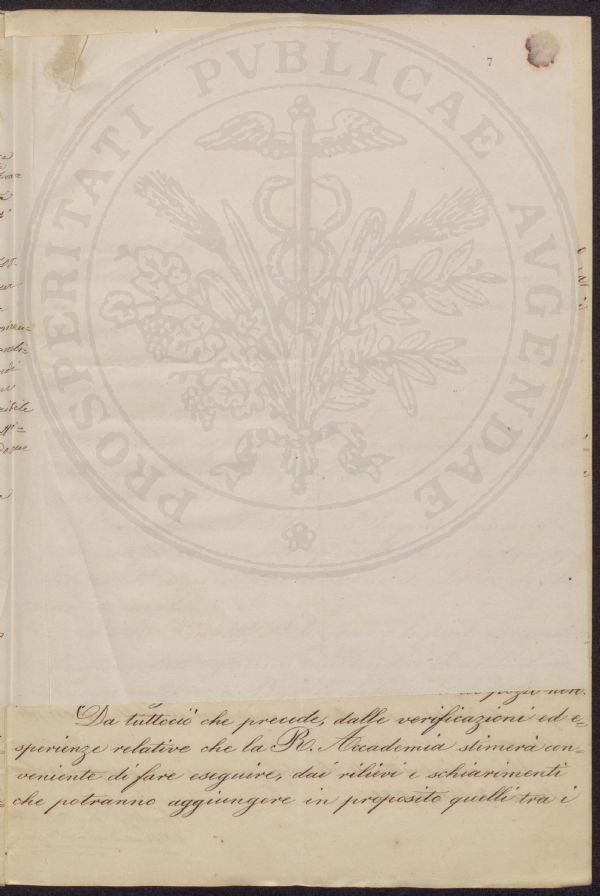 7
PROSPERITATI PVBLICAE AVGENDAE
Da tuttociò che precede, dalle verificazioni ed e-
sperienze relative che la R. Accademia stimerà con=
veniente di fare eseguire, dai rilievi e schiarimenti
che potranno aggiungere in proposito quelli tra i